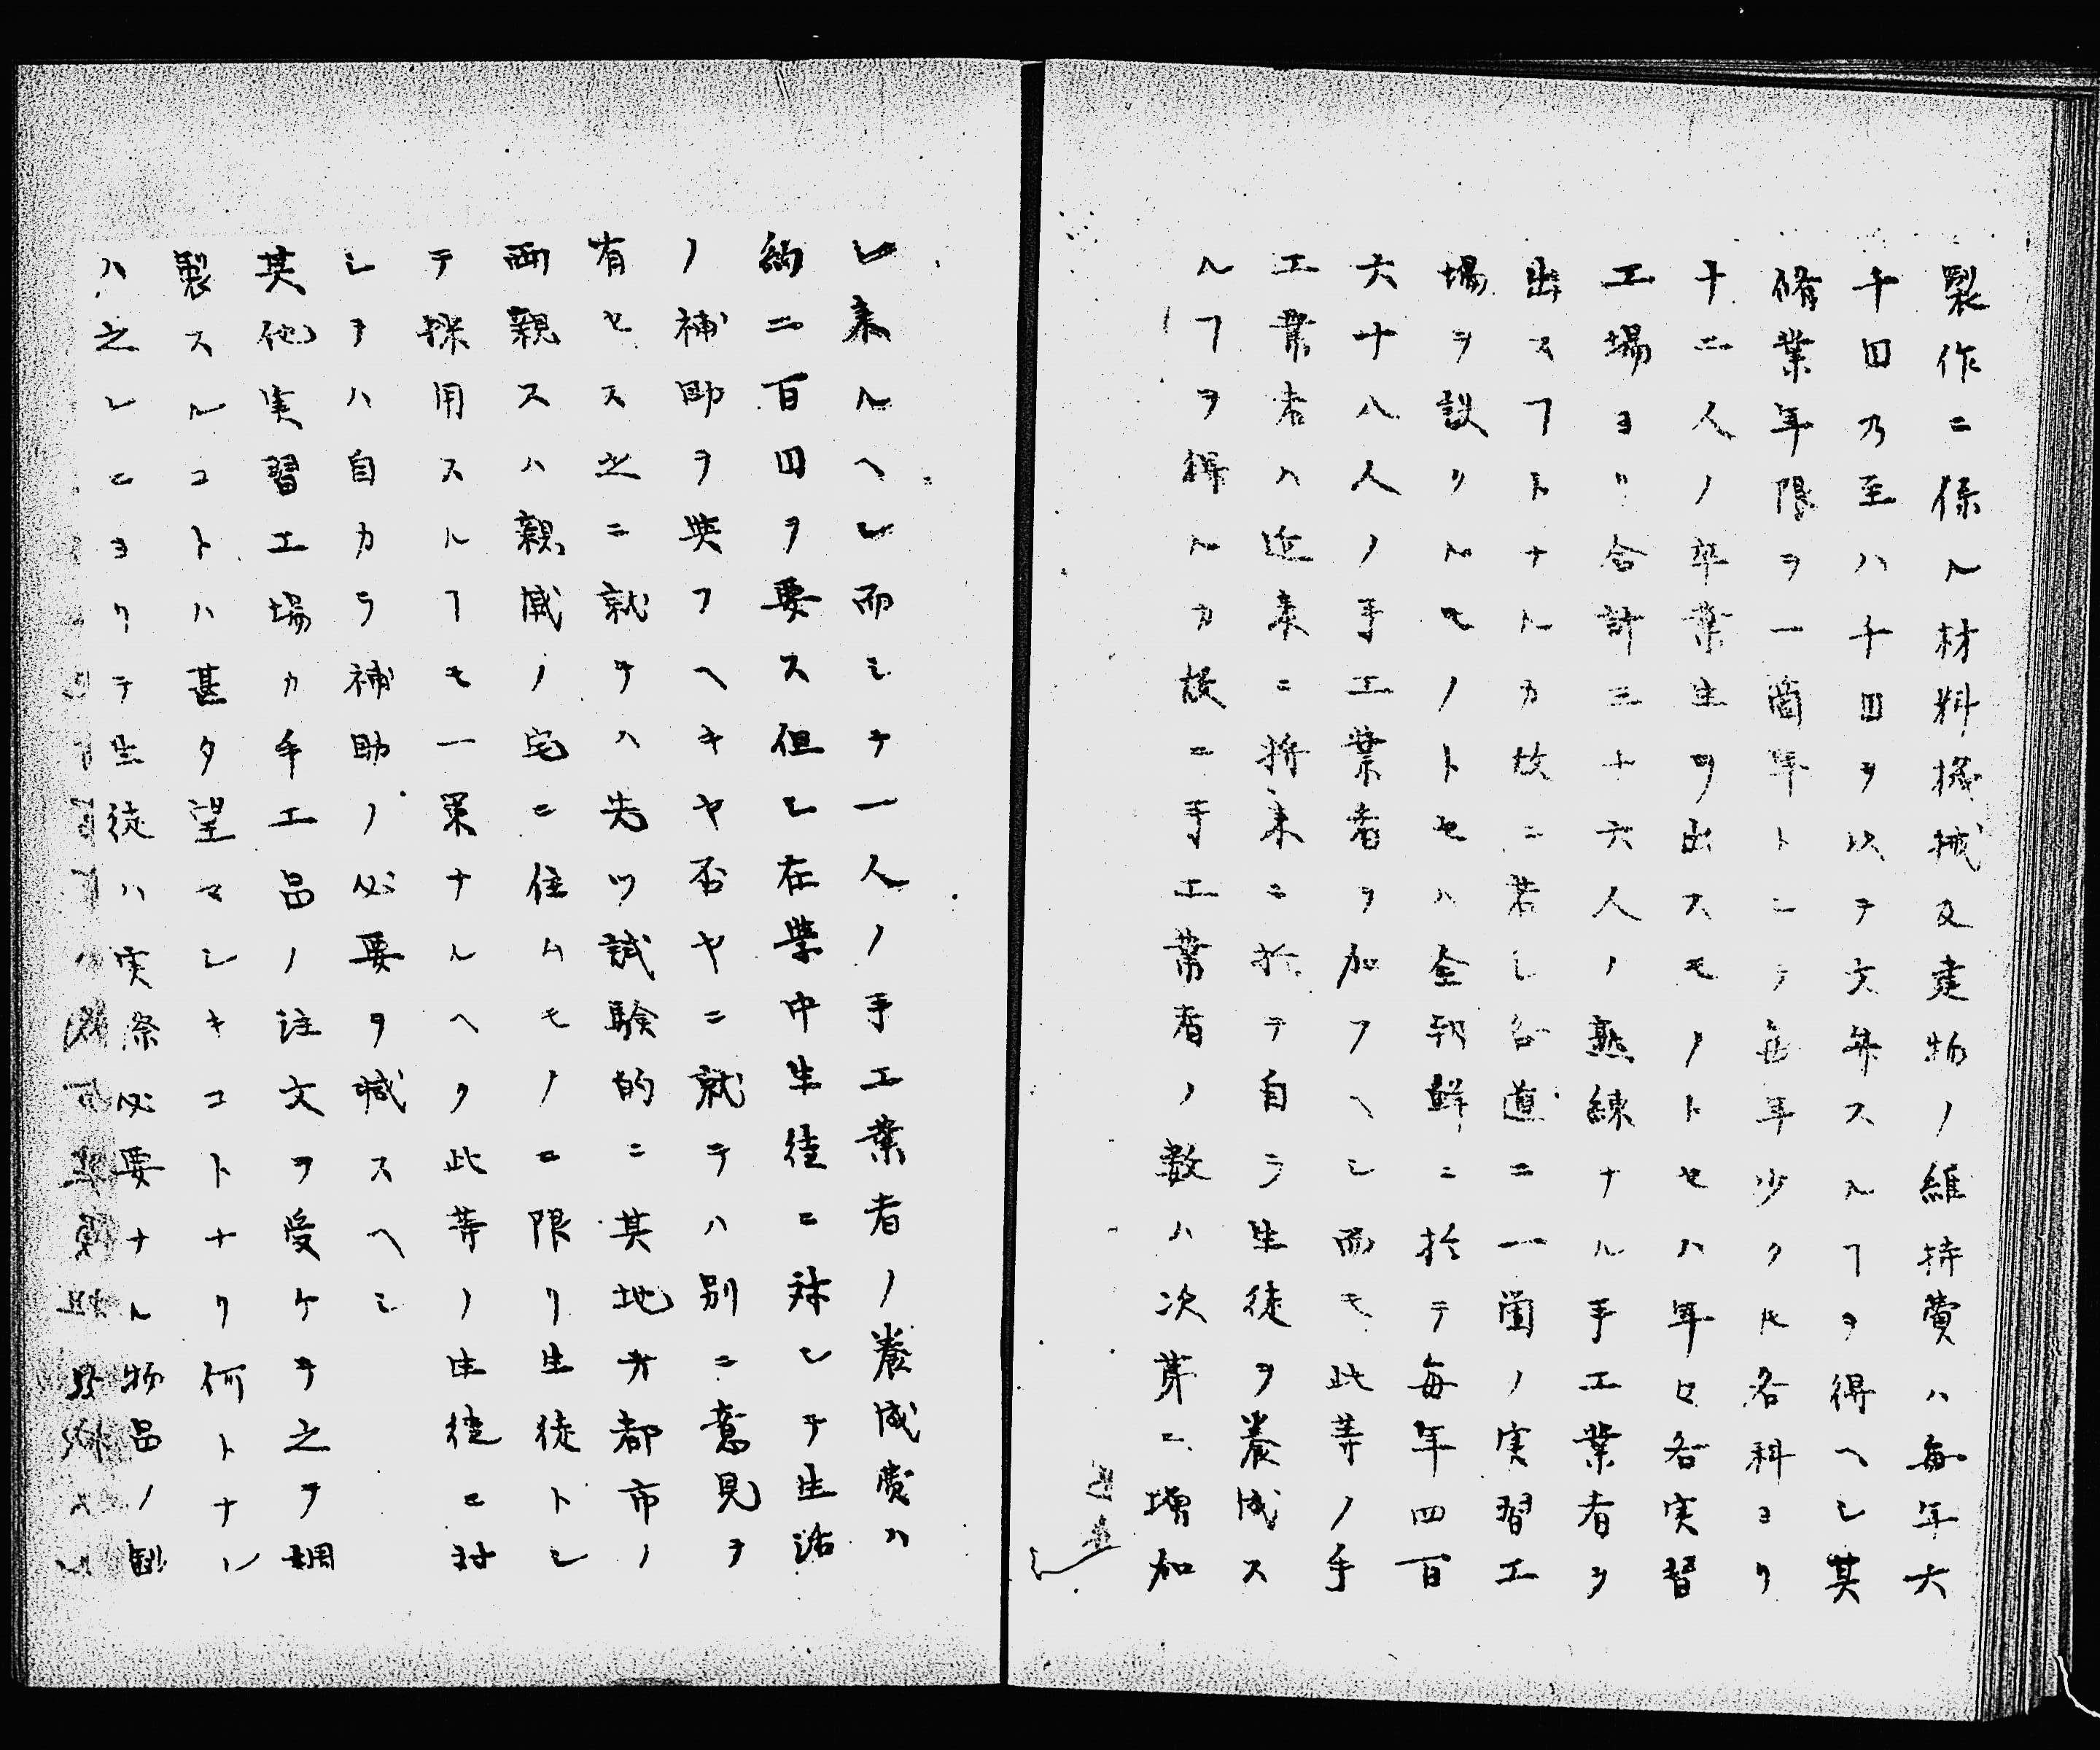 製作ニ係ル材料機械及建物ノ維持費ハ毎年六
千円乃至ハ千円ヲ以テ支弁スルヿヲ得ヘシ其
脩業年限ヲ一箇年トシテ毎年少クトモ各科ヨリ
十二人ノ卒業生ヲ出スモノトセハ年ヒ各実習
工場ヨリ合計三十六人ノ熟練ナル手工業者ヲ
出スヿトナルカ故ニ若シ各道ニ一箇ノ実習工
場ヲ設クルモノトセハ全朝鮮ニ於テ毎年四百
六十八人ノ手工業者ヲ加フヘシ而モ此等ノ手
工業者ハ近来ニ将来ニ於テ自ラ生徒ヲ養成ス
ルヿヲ得ルカ故ニ手工業者ノ数ハ次第ニ増加
シ来ルヘシ而シテ一人ノ手工業者ノ養成費ハ
約二百円ヲ要ス但シ在学中生徒ニ対シテ生活
ノ補助ヲ与フヘキヤ否ヤニ就テハ別ニ意見ヲ
有セス之ニ就テハ先ツ試験的ニ其地方都市ノ
両親又ハ親戚ノ宅ニ住ムモノニ限リ生徒トシ
テ採用スルヿモ一策ナルヘク此等ノ生徒ニ対
シテハ自カラ補助ノ必要ヲ減スヘシ
其他実習工場カ手工品ノ注文ヲ受ケテ之ヲ調
製スルコトハ甚タ望マシキコトナリ何トナレ
ハ之レニヨリテ生徒ハ実際必要ナル物品ノ製